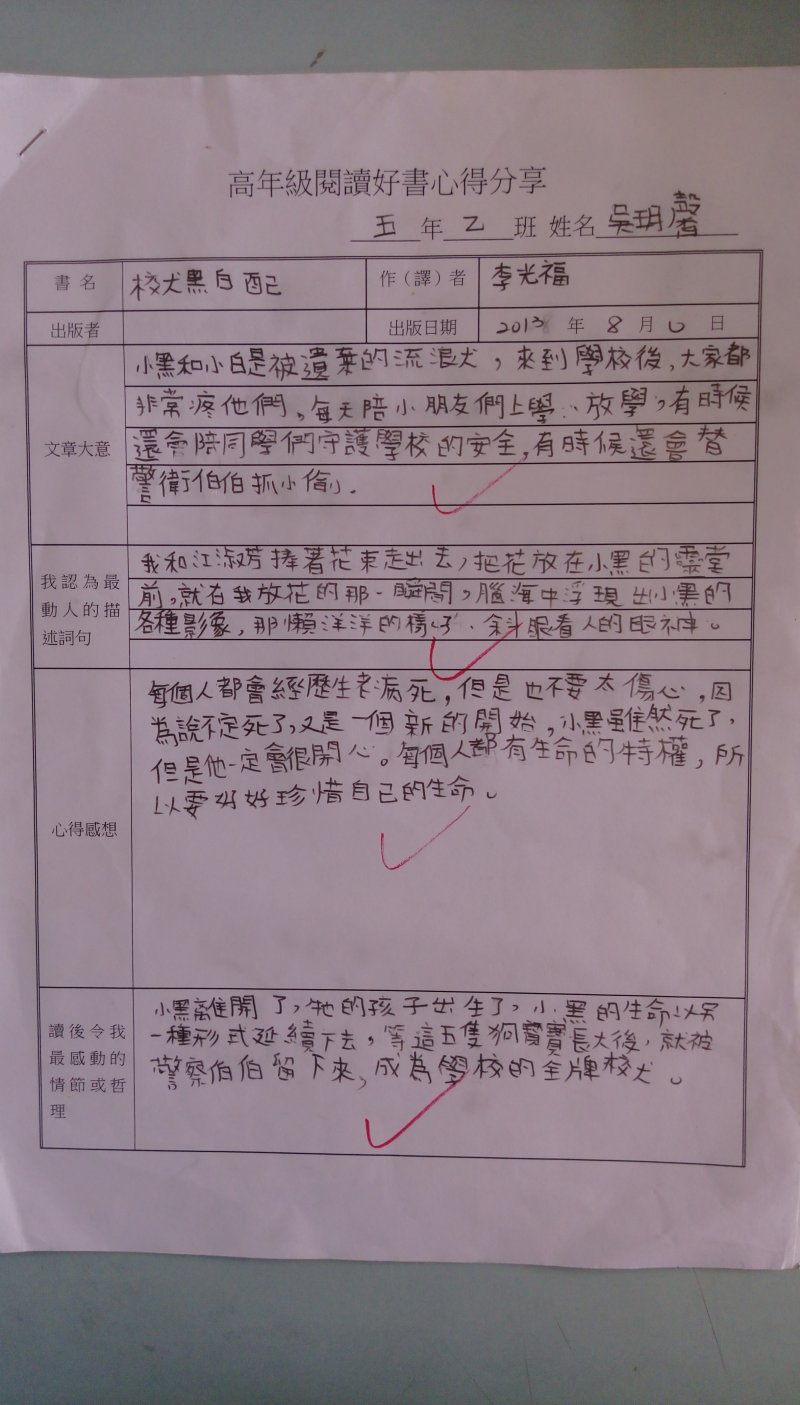 高年級閱讀好書心得分享
五年乙班 姓名吳玥馨
書名 校犬黑白配 作(譯)者 李光福
出版者 出版日期 2013年8月0日
文章大意
小黑和小白是被遺棄的流浪犬，來到學校後，大家都
非常疼他們，每天陪小朋友們上學、放學，有時候
還會陪同學們守護學校的安全，有時候還會替
警衛伯伯抓小偷。
我認為最動人的描述詞句
我和江淑芳捧著花束走出去，把花放在小黑的靈堂
前，就在我放花的那一瞬間，腦海中浮現出小黑的
各種影像，那懶洋洋的樣子、斜眼看人的眼神。
心得感想
每個人都會經歷生老病死，但是也不要太傷心，因
為說不定死了，又是一個新的開始，小黑雖然死了，
但是他一定會很開心。每個人都有生命的特權，所
以要好好珍惜自己的生命。
讀後令我最感動的情節或哲理
小黑離開了，牠的孩子出生了，小黑的生命以另
一種形式延續下去，等這五隻狗寶寶長大後，就被
警察伯伯留下來，成為學校的全牌校犬。